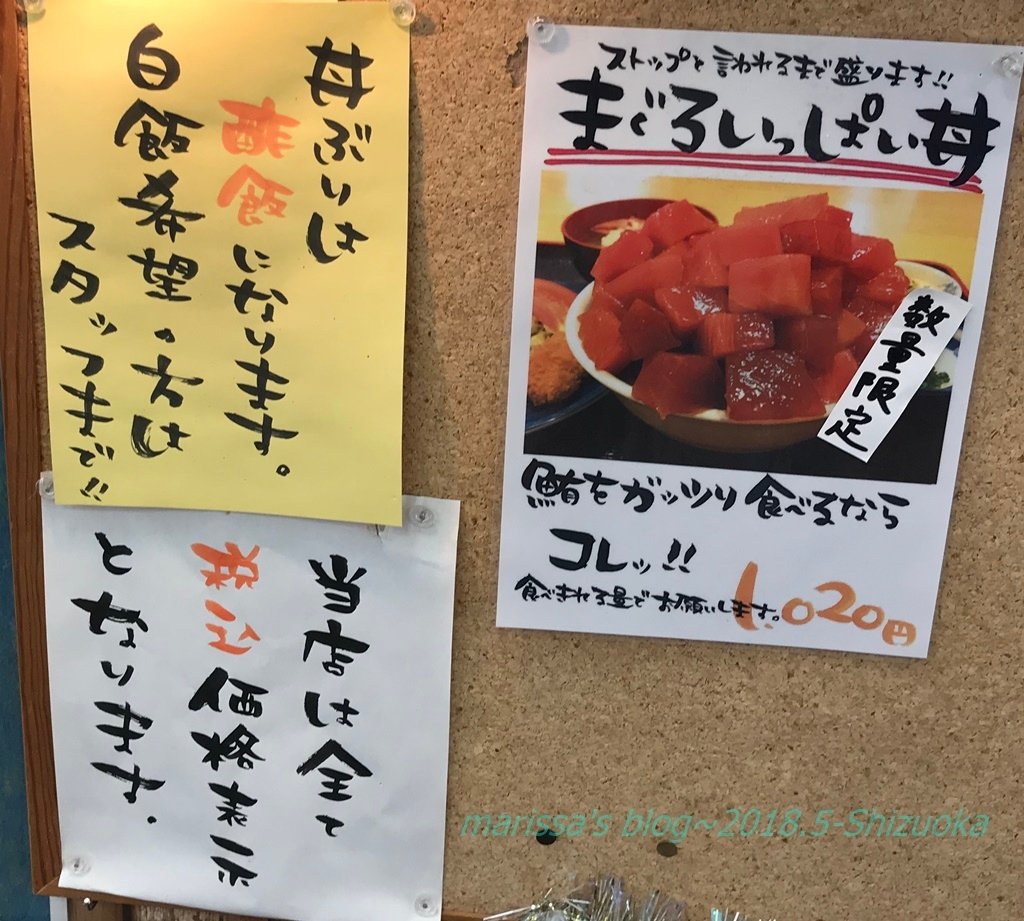 丼ぶりは
酢飯になります。
白飯希望の方は
スタッフまで!!
当店は全て
税込価格表示
となります。
ストップと言われるまで盛ります!!
まぐろいっぱい丼
数量限定
鮪をガッツリ食べるなら
コレッ!!
食べきれる量でお願いします。
1.020円
marissa's blog~2018.5-Shizuoka